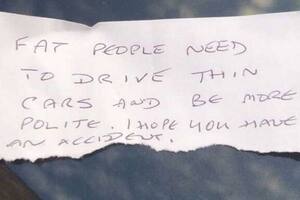 FAT PEOPLE NEED
TO DRIVE THIN
CARS AND BE MORE
POLITE. I HOPE YOU HAVE
AN ACCIDENT.